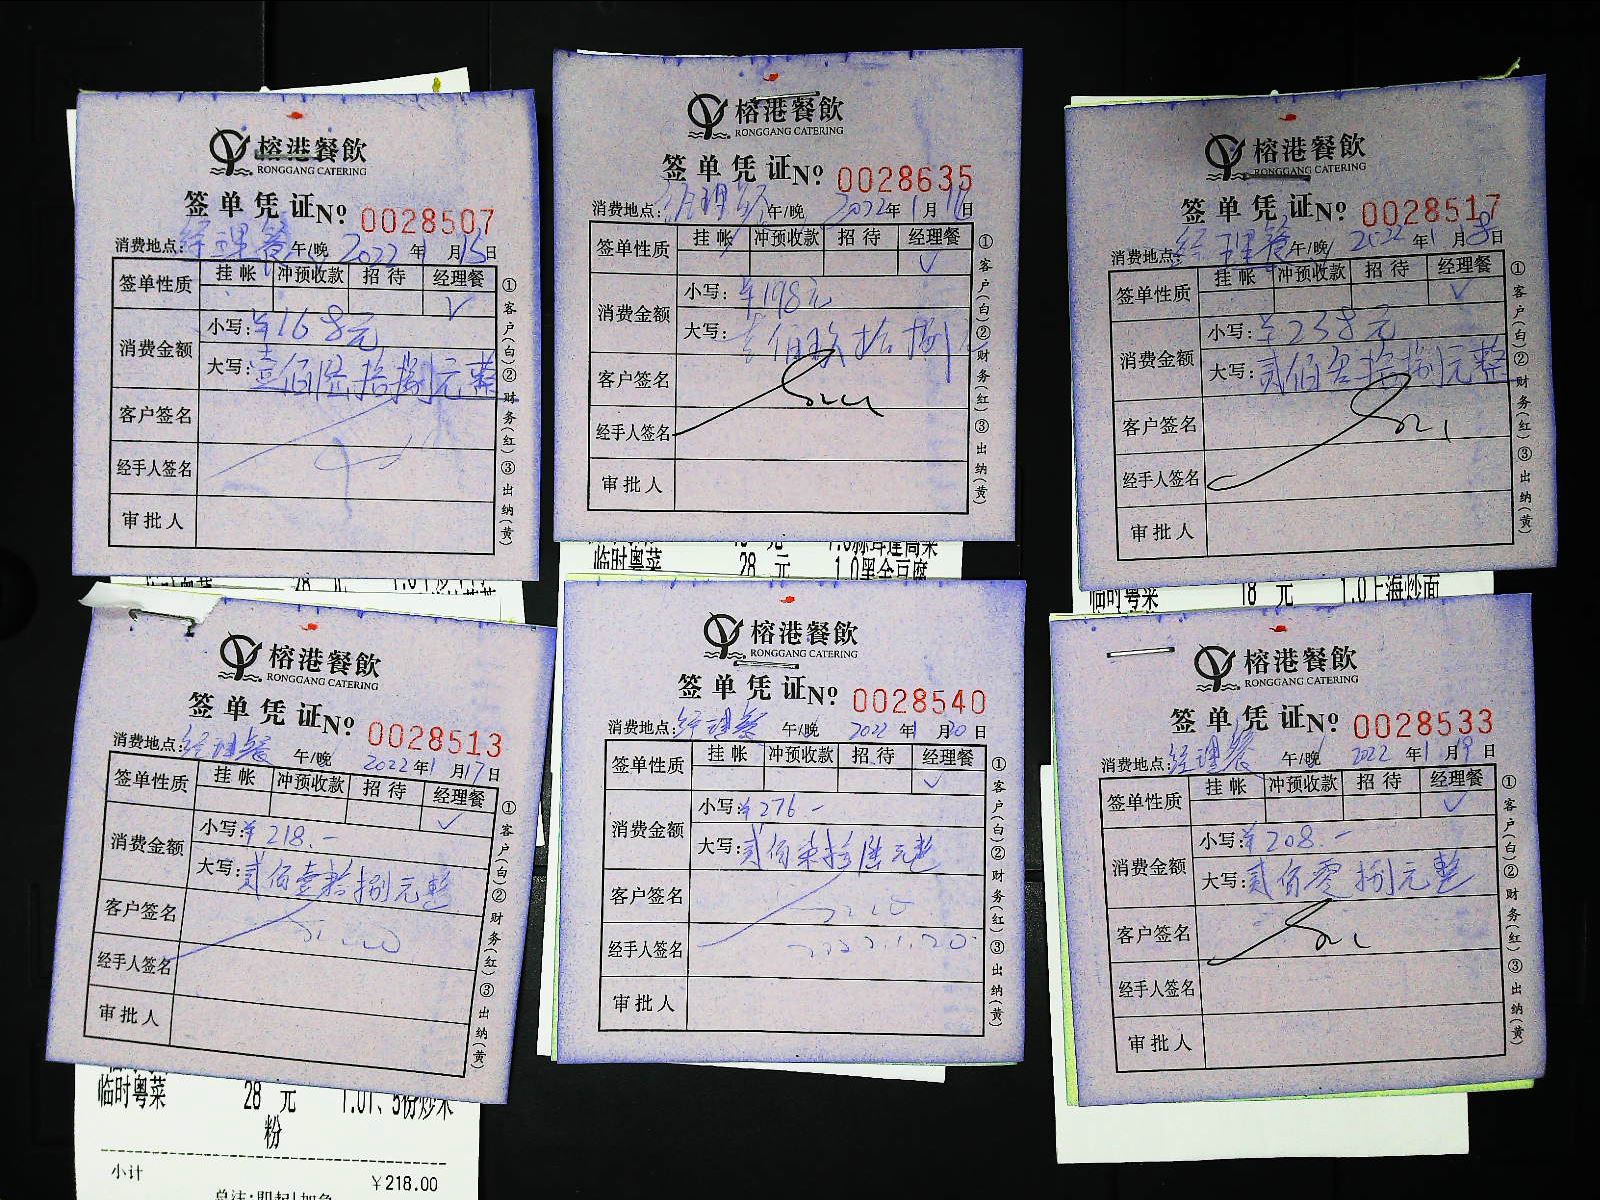 榕港餐飲
RONGGANG CATERING
签单凭证 № 0028507
消费地点:经理餐 午/晚 2022年1月15日
签单性质 挂帐 冲预收款 招待 经理餐
✓
消费金额 小写:¥168元
大写:壹佰陆拾捌元整
客户签名
经手人签名
审批人
①客户(白)②财务(红)③出纳(黄)
榕港餐飲
RONGGANG CATERING
签单凭证 № 0028635
消费地点:经理餐 午/晚 2022年1月16日
签单性质 挂帐 冲预收款 招待 经理餐
✓
消费金额 小写:¥198元
大写:壹佰玖拾捌
客户签名
经手人签名
审批人
①客户(白)②财务(红)③出纳(黄)
临时粤菜 28 元 1.0黑金豆腐
榕港餐飲
RONGGANG CATERING
签单凭证 № 0028517
消费地点:经理餐 午/晚 2022年1月18日
签单性质 挂帐 冲预收款 招待 经理餐
✓
消费金额 小写:¥238元
大写:贰佰叁拾捌元整
客户签名
经手人签名
审批人
①客户(白)②财务(红)③出纳(黄)
临时粤菜 18 元 1.0上海炒面
榕港餐飲
RONGGANG CATERING
签单凭证 № 0028513
消费地点:经理餐 午/晚 2022年1月17日
签单性质 挂帐 冲预收款 招待 经理餐
✓
消费金额 小写:¥218.-
大写:贰佰壹拾捌元整
客户签名
经手人签名
审批人
①客户(白)②财务(红)③出纳(黄)
临时粤菜 28 元
粉
小计 ¥218.00
榕港餐飲
RONGGANG CATERING
签单凭证 № 0028540
消费地点:经理餐 午/晚 2022年1月20日
签单性质 挂帐 冲预收款 招待 经理餐
✓
消费金额 小写:¥276-
大写:贰佰柒拾陆元整
客户签名
经手人签名 2022.1.20
审批人
①客户(白)②财务(红)③出纳(黄)
榕港餐飲
RONGGANG CATERING
签单凭证 № 0028533
消费地点:经理餐 午/晚 2022年1月19日
签单性质 挂帐 冲预收款 招待 经理餐
✓
消费金额 小写:¥208.-
大写:贰佰零捌元整
客户签名
经手人签名
审批人
①客户(白)②财务(红)③出纳(黄)